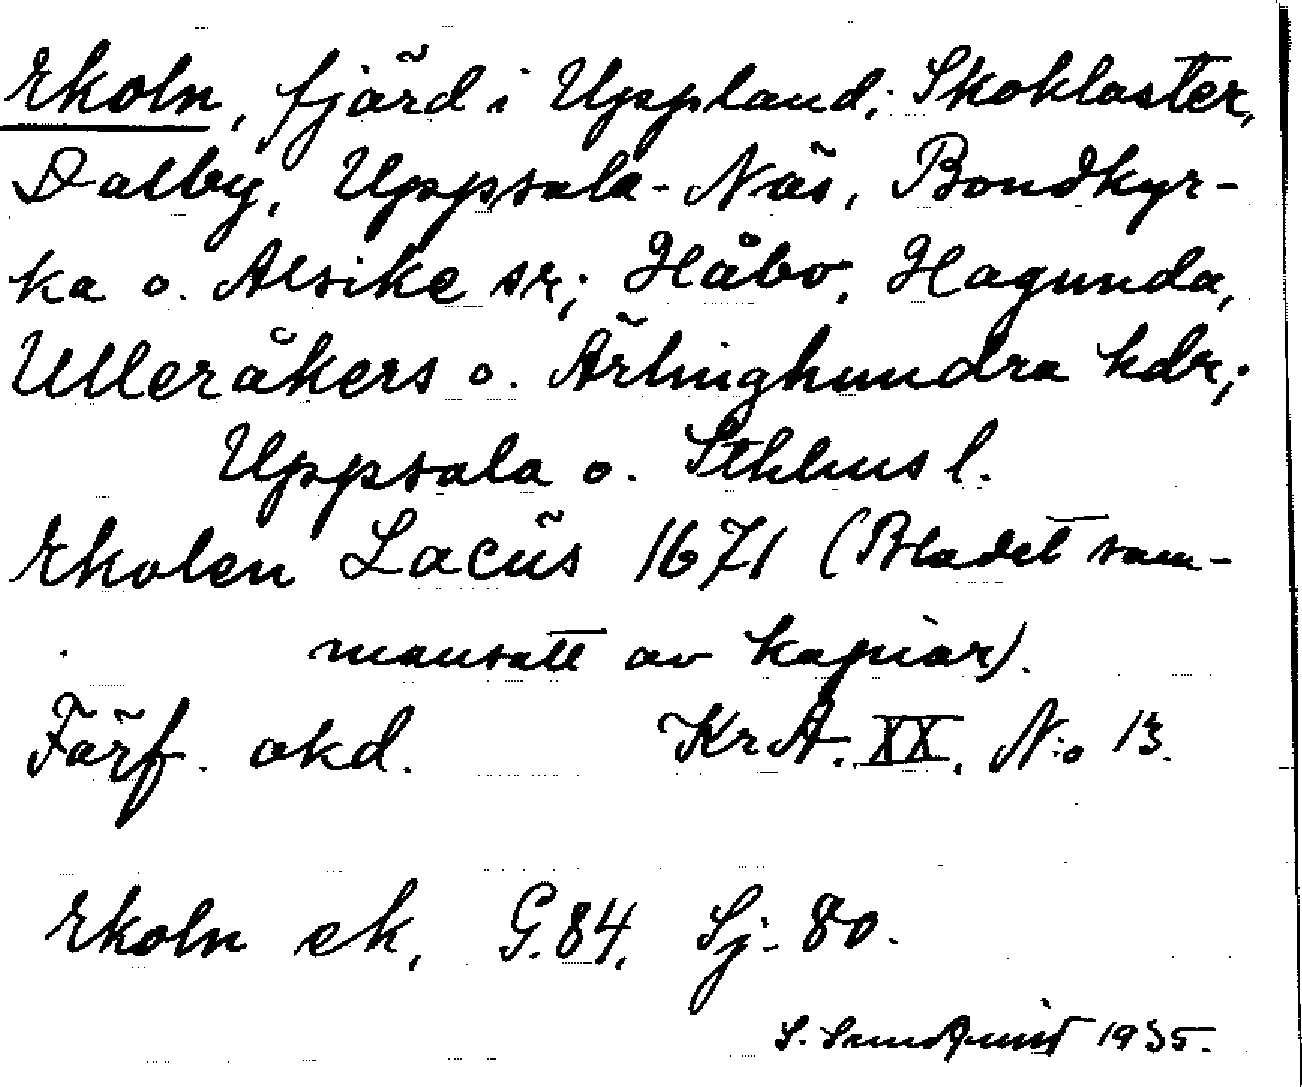 Ekoln, fjärd i Uppland; Skokloster,
Dalby, Uppsala-Näs, Bondkyr-
ka o. Alsike sr; Håbo, Hagunda,
Ulleråkers o. Ärlinghundra hdr;
Uppsala o. Sthlms l.
Ekolen Lacus 1671 (Bladet sam-
mansatt av kopior).
Förf. okd. KrA. XX. N:o 13.
Ekoln ek, G. 84, Sj. 80.
S. Sundquist 1935.